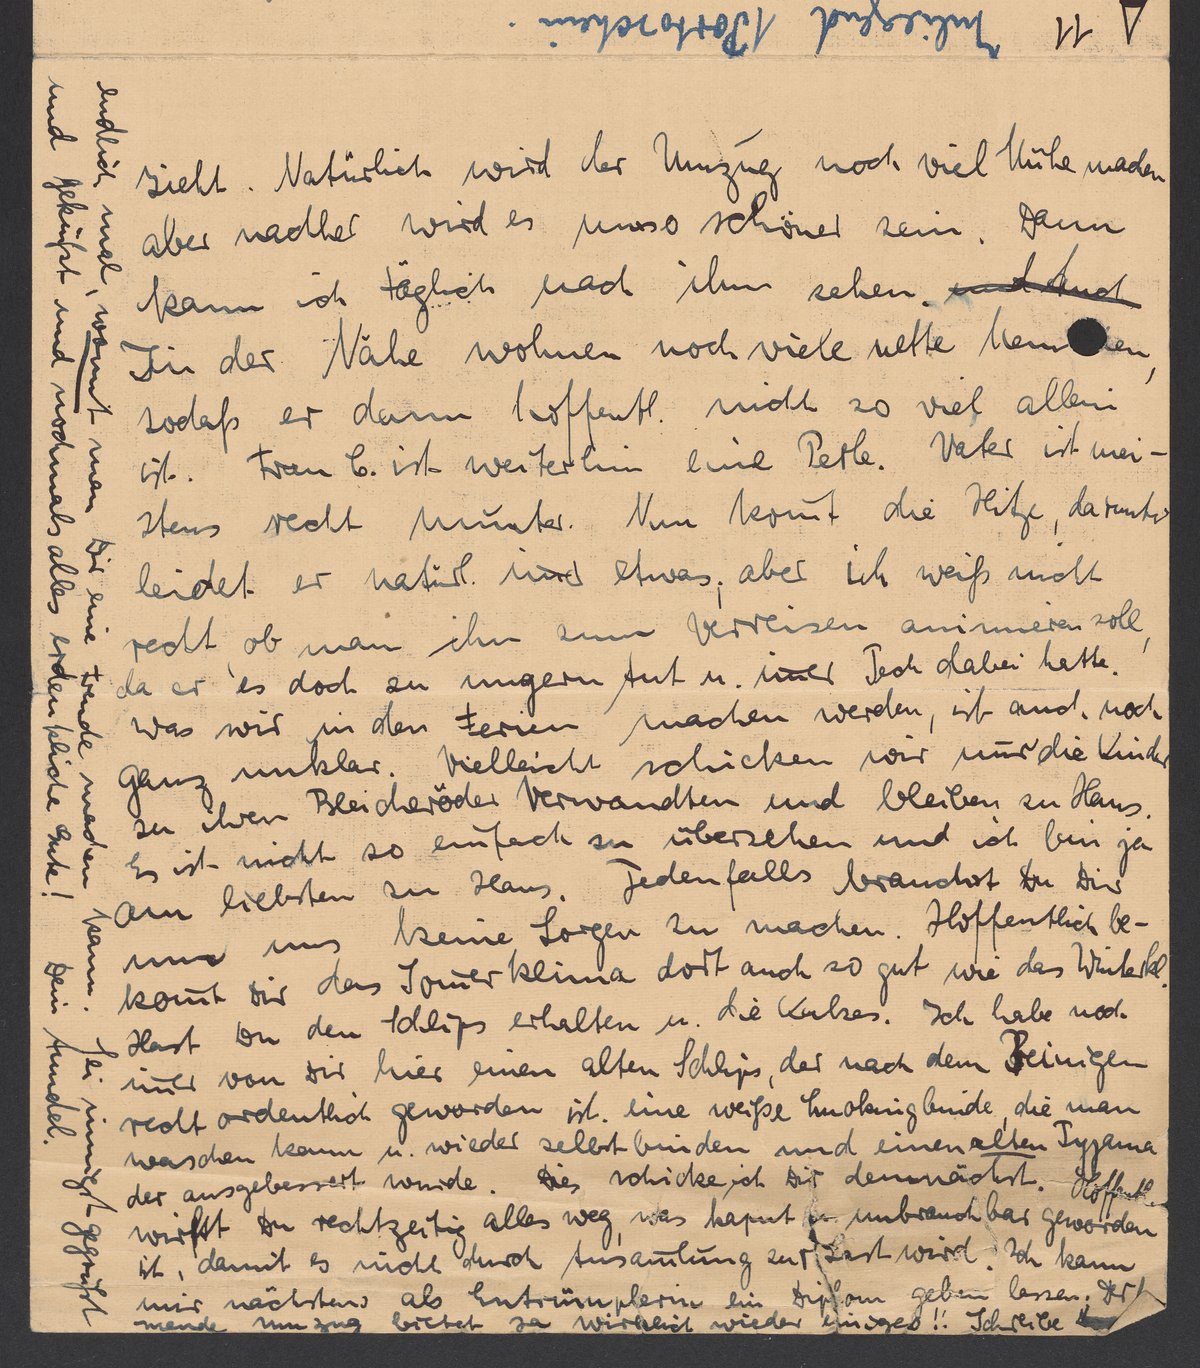 Inliegend 1 Portoschein.
11
zieht. Natürlich wird der Umzug noch viel Mühe machen
aber nachher wird es umso schöner sein. Dann
kann ich täglich nach ihm sehen. und auch
In der Nähe wohnen noch viele nette Men en,
sodaß er dann hoffentl. nicht so viel allein
ist. Frau C. ist weiterhin eine Perle. Vater ist mei-
stens recht munter. Nun kom̄t die Hitze, darunter
leidet er natürl. im̄er etwas, aber ich weiß nicht
recht, ob man ihn zum Verreisen animieren soll,
da er es doch so ungern tut u. im̄er Pech dabei hatte.
was wir in den Ferien machen werden, ist auch noch
ganz unklar. Vielleicht schicken wir nur die Kinder
zu ihren Bleicheröder Verwandten und bleiben zu Haus.
Es ist nicht so einfach zu übersehen und ich bin ja
am liebsten zu Haus. Jedenfalls brauchst Du Dir
um uns keine Sorgen zu machen. Hoffentlich be-
kom̄t Dir das Som̄erklima dort auch so gut wie das Winterkl.
Hast Du den Schlips erhalten u. die Kulzes. Ich habe noch
im̄er von Dir hier einen alten Schlips, der nach dem Reinigen
recht ordentlich geworden ist. eine weiße Smokingbinde, die man
waschen kann u. wieder selbst binden und einen alten Pyjama
der ausgebessert wurde. Dies schicke ich Dir demnächst. Hoffentl.
wirfst Du rechtzeitig alles weg, was kaput u. unbrauchbar geworden
ist, damit es nicht durch Ansam̄lung zur Last wird. Ich kann
mir nächstens als Entrümplerin ein Diplom geben lassen. Der
mende Umzug bietet ja wirklich wieder einiges!! Schreibe
endlich mal, womit man Dir eine Freude machen kann. Sei innigst gegrüßt
und geküßt und nochmals alles erdenkliche Gute! Dein Mundel.